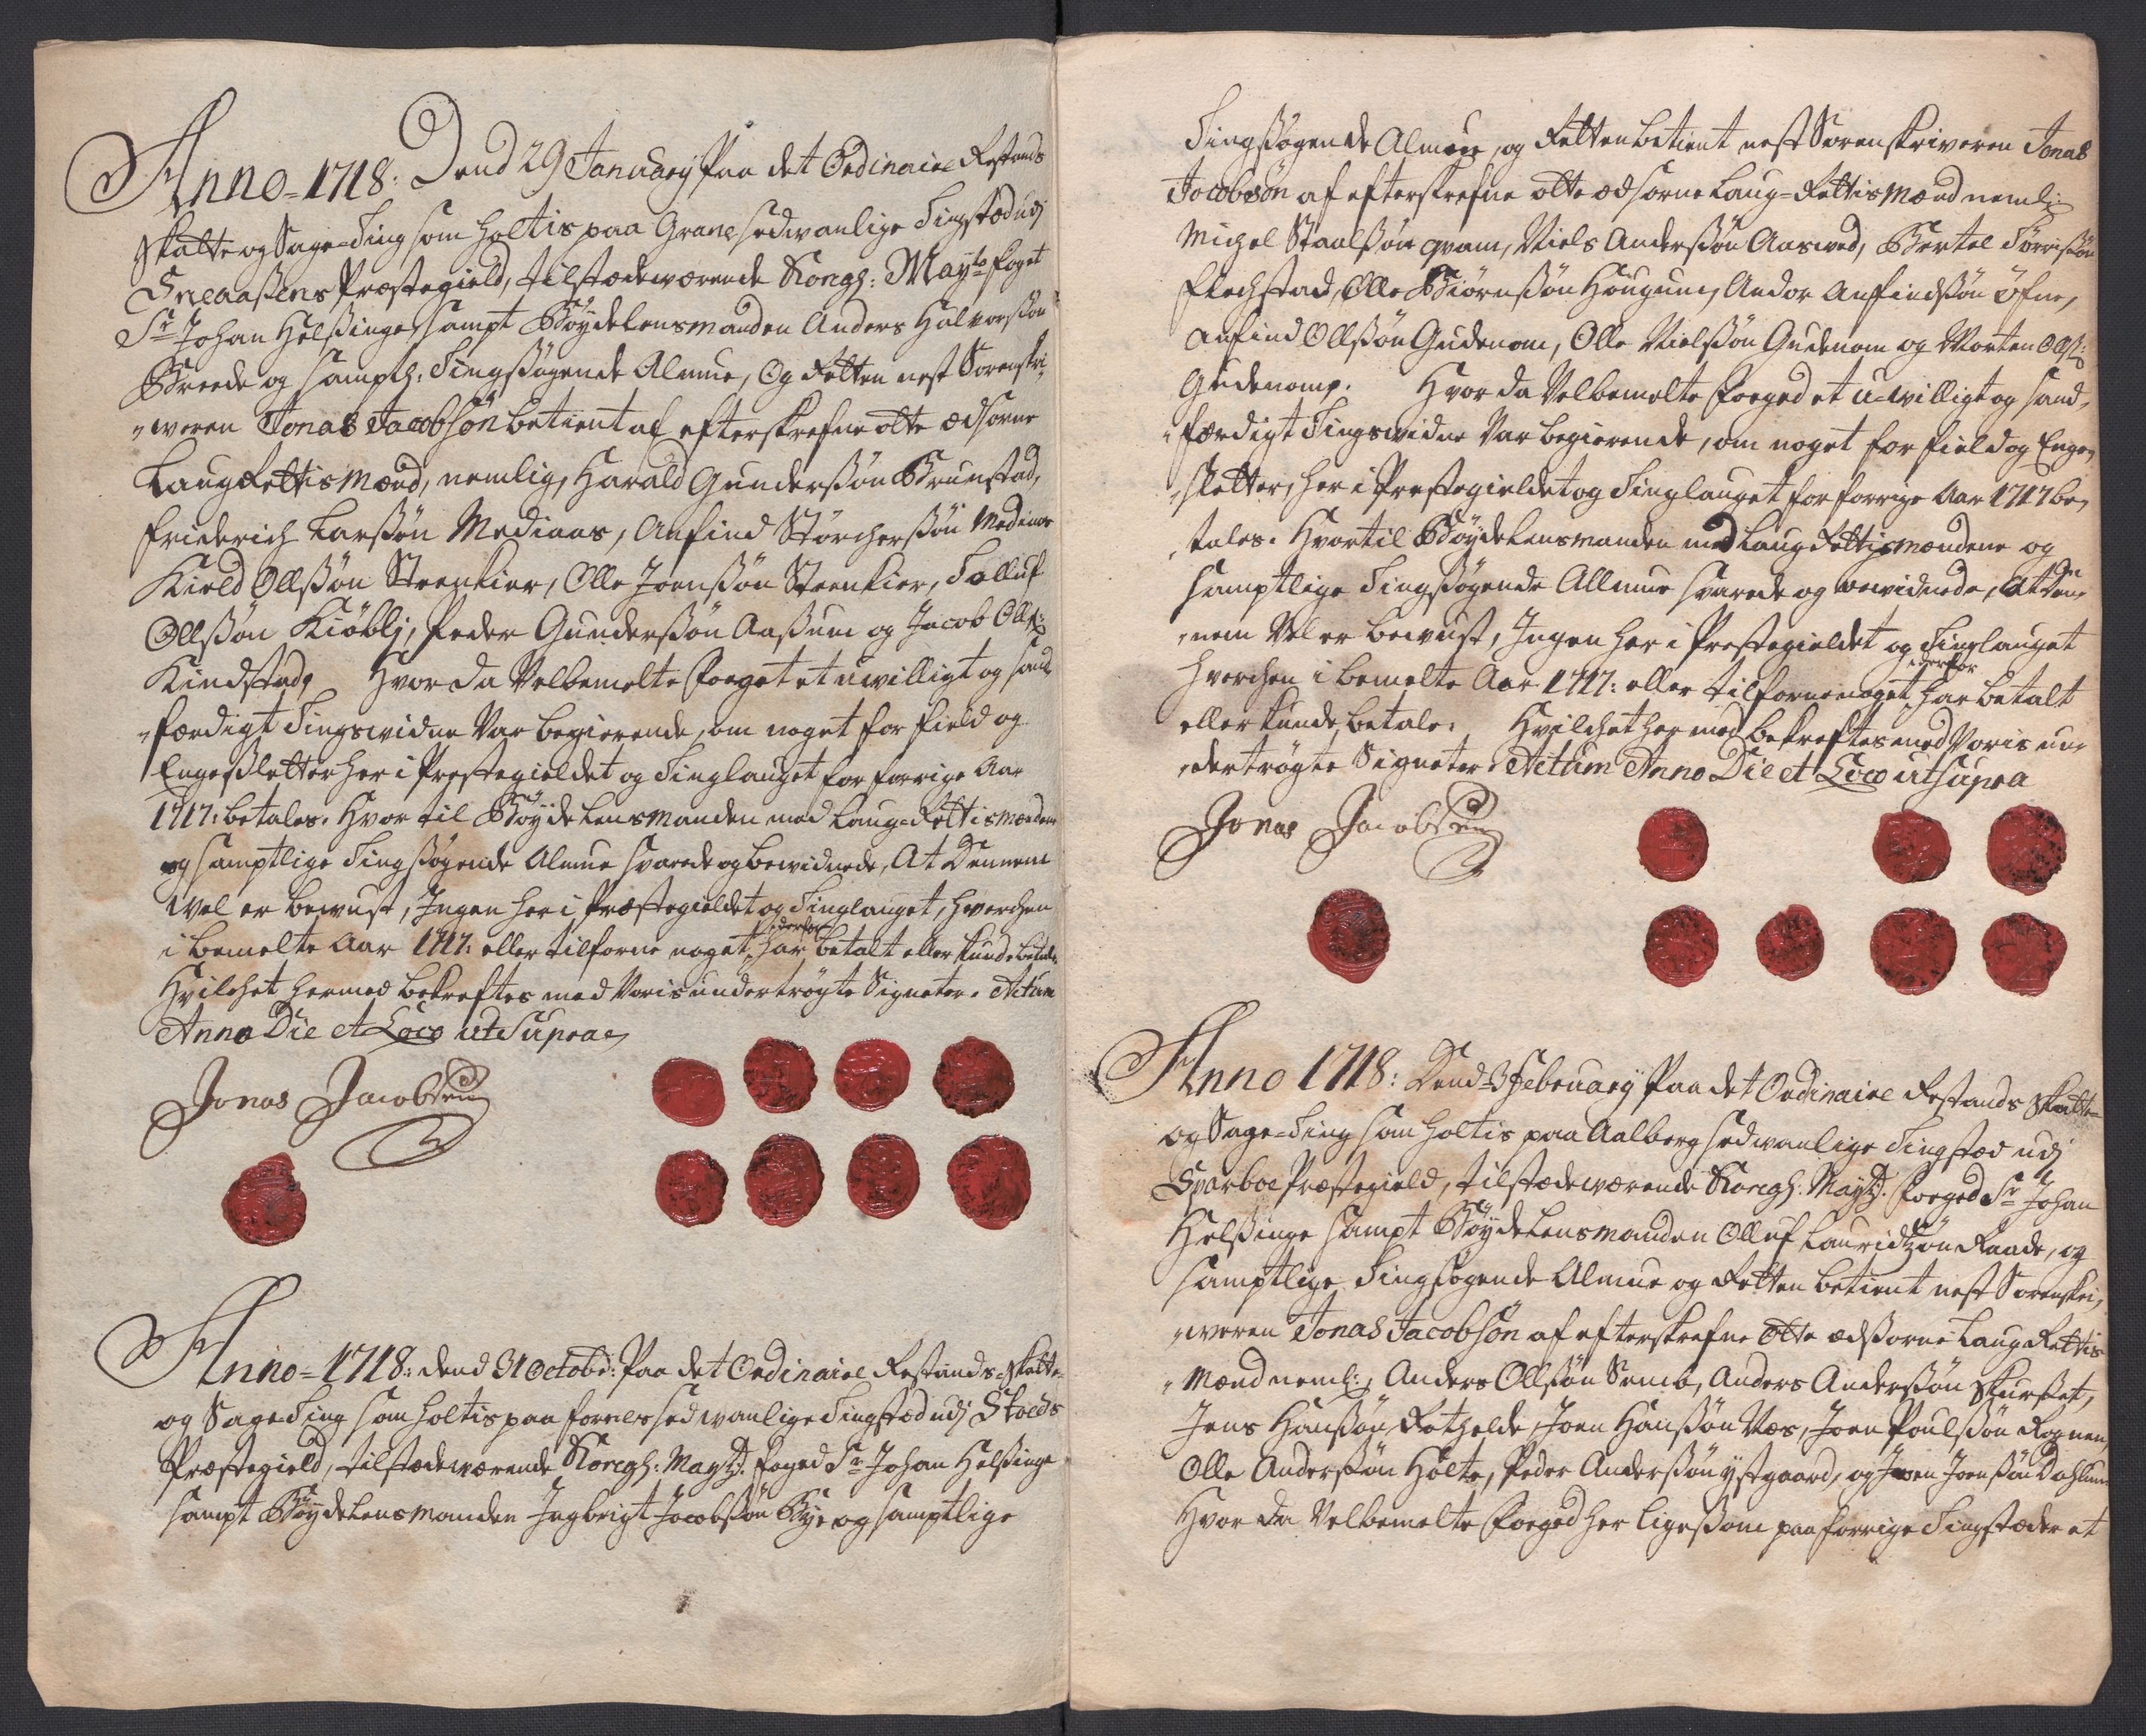 Anno = 1718: Dend 29 January Paa det Ordinaire Restands
Skatte og Sage=Ting som holtis paa Grane sedwanlige Tingsted udj
Sneaasens Præstegield, tilstædewærende Kongl: Mayts foget
Sr Johan Helssinge, sampt Böydelensmanden Anders Halvorssön
Breede og sampth: Tingssögende Almue, Og Retten nest Sorenskri„
„weren Jonas Jacobsön betient af efterskrefne otte ædsorne
LaugRettis Mænd, nemlig, Harald Gunderssön Brunstad,
Friederich Larssön Mediaas, Anfind Störcherssön Mediaas
Kield Ollssön Strenkier, Olle Joenssön Steenkier, Tolluf
Ollssön Kiöblj, Peder Gunderssön Aassum og Jacob Ollss:
Kindstad, Hvor da Velbemelte foeget et uwilligt og sand
„færdigt Tingswidne Var begierende, om noget for field og
Engesletter her i Præstegieldet og Tinglauget for forrige Aar
1717: betales. Hvor til Böyde Lensmanden med Laug=Rettismændene
og samptlige Tingssögende Almue svarede og bewidnede, At Dennem
Vel er bewust, Ingen her i Præstegieldet og Tinglauget, hwerchen
i bemelte Aar 1717: eller tilforne noget derfor har betalt eller kunde betale.
Hvilchet hermed bekreftes med Voris undertrögte Signeter. Actum
Anno Die et Loco ut Supra
Jonas Jacobsen
Anno = 1718: dend 31 Octobr: Paa det Ordinaire Restands=Skatte=
og Sage Ting som holtis paa forres sedwanlige Tingsted udj Stoeds
Præstegield, tilstædewærende Kongl: Mayts: foged Sr Johan Helssinge
sampt Böydelensmanden Ingbrigt Jacobssön Bye og samptlige
Tingssögende Almue, og Retten betient nest Sorenskriveren Jonas
Jocobsön af efterskrefne otte ædsorne Laug=Rettis Mænd nemlig
Michel Staalssön qvam, Niels Anderssön Aaswed, Bertel Törrissön
Flechstad, Olle Biörnssön Hougum, Andor Anfindssön Öfne,
Anfind Ollssön Gudenom, Olle Nielssön Gudenom og Morten Ollss:
Gudenom. Hvor da Velbemelte Foeged et u=willigt og sand„
„færdigt Tingswidne Var begierende, om noget for field og Enge„
„sletter, her i Prestegieldet og Tinglauget for forrige Aar 1717 be„
„tales. Hvortil Böydelensmanden med LaugRettismændene og
samptlige Tingssögende Allmue svarede og bewidnede, At den„
„nem Vel er bewust, Ingen her i Prestegieldet og Tinglauget
hverchen i bemelte Aar 1717: eller tilforne noget derfor har betalt
eller kunde betale. Hvilchet her med bekreftes med Voris un„
„dertrögte Signeter. Actum Anno Die et Loco ut supra
Jonas Jacobsen
Anno 1718: Dend 3 February Paa det Ordinaire Restands Skatte=
og Sage=Ting som holtis paa Aalberg sedwanlige Tingsted udj
Sparboe Præstegield, tilstædewærende Kongl: Mayts: foeged Sr Johan
Helssinge sampt Böydelensmanden Olluf Lauridtzön Raade, og
samptlige Tingsögende Almue og Retten betient nest Sorenskri„
„weren Jonas Jacobsön af efterskrefne Otte ædssorne LaugRettis
„Mænd neml:, Anders Ollssön Semb, Anders Anderssön Skursset,
Jens Hanssön Rotzelde, Joen Hanssön Næs, Joen Poulssön Rognen,
Olle Anderssön Holte, Peder Anderssön ystgaard, og Iwen Joenssön Dahlum
Hvor da Velbemelte Foeged her ligessom paa forrige Tingstæder et